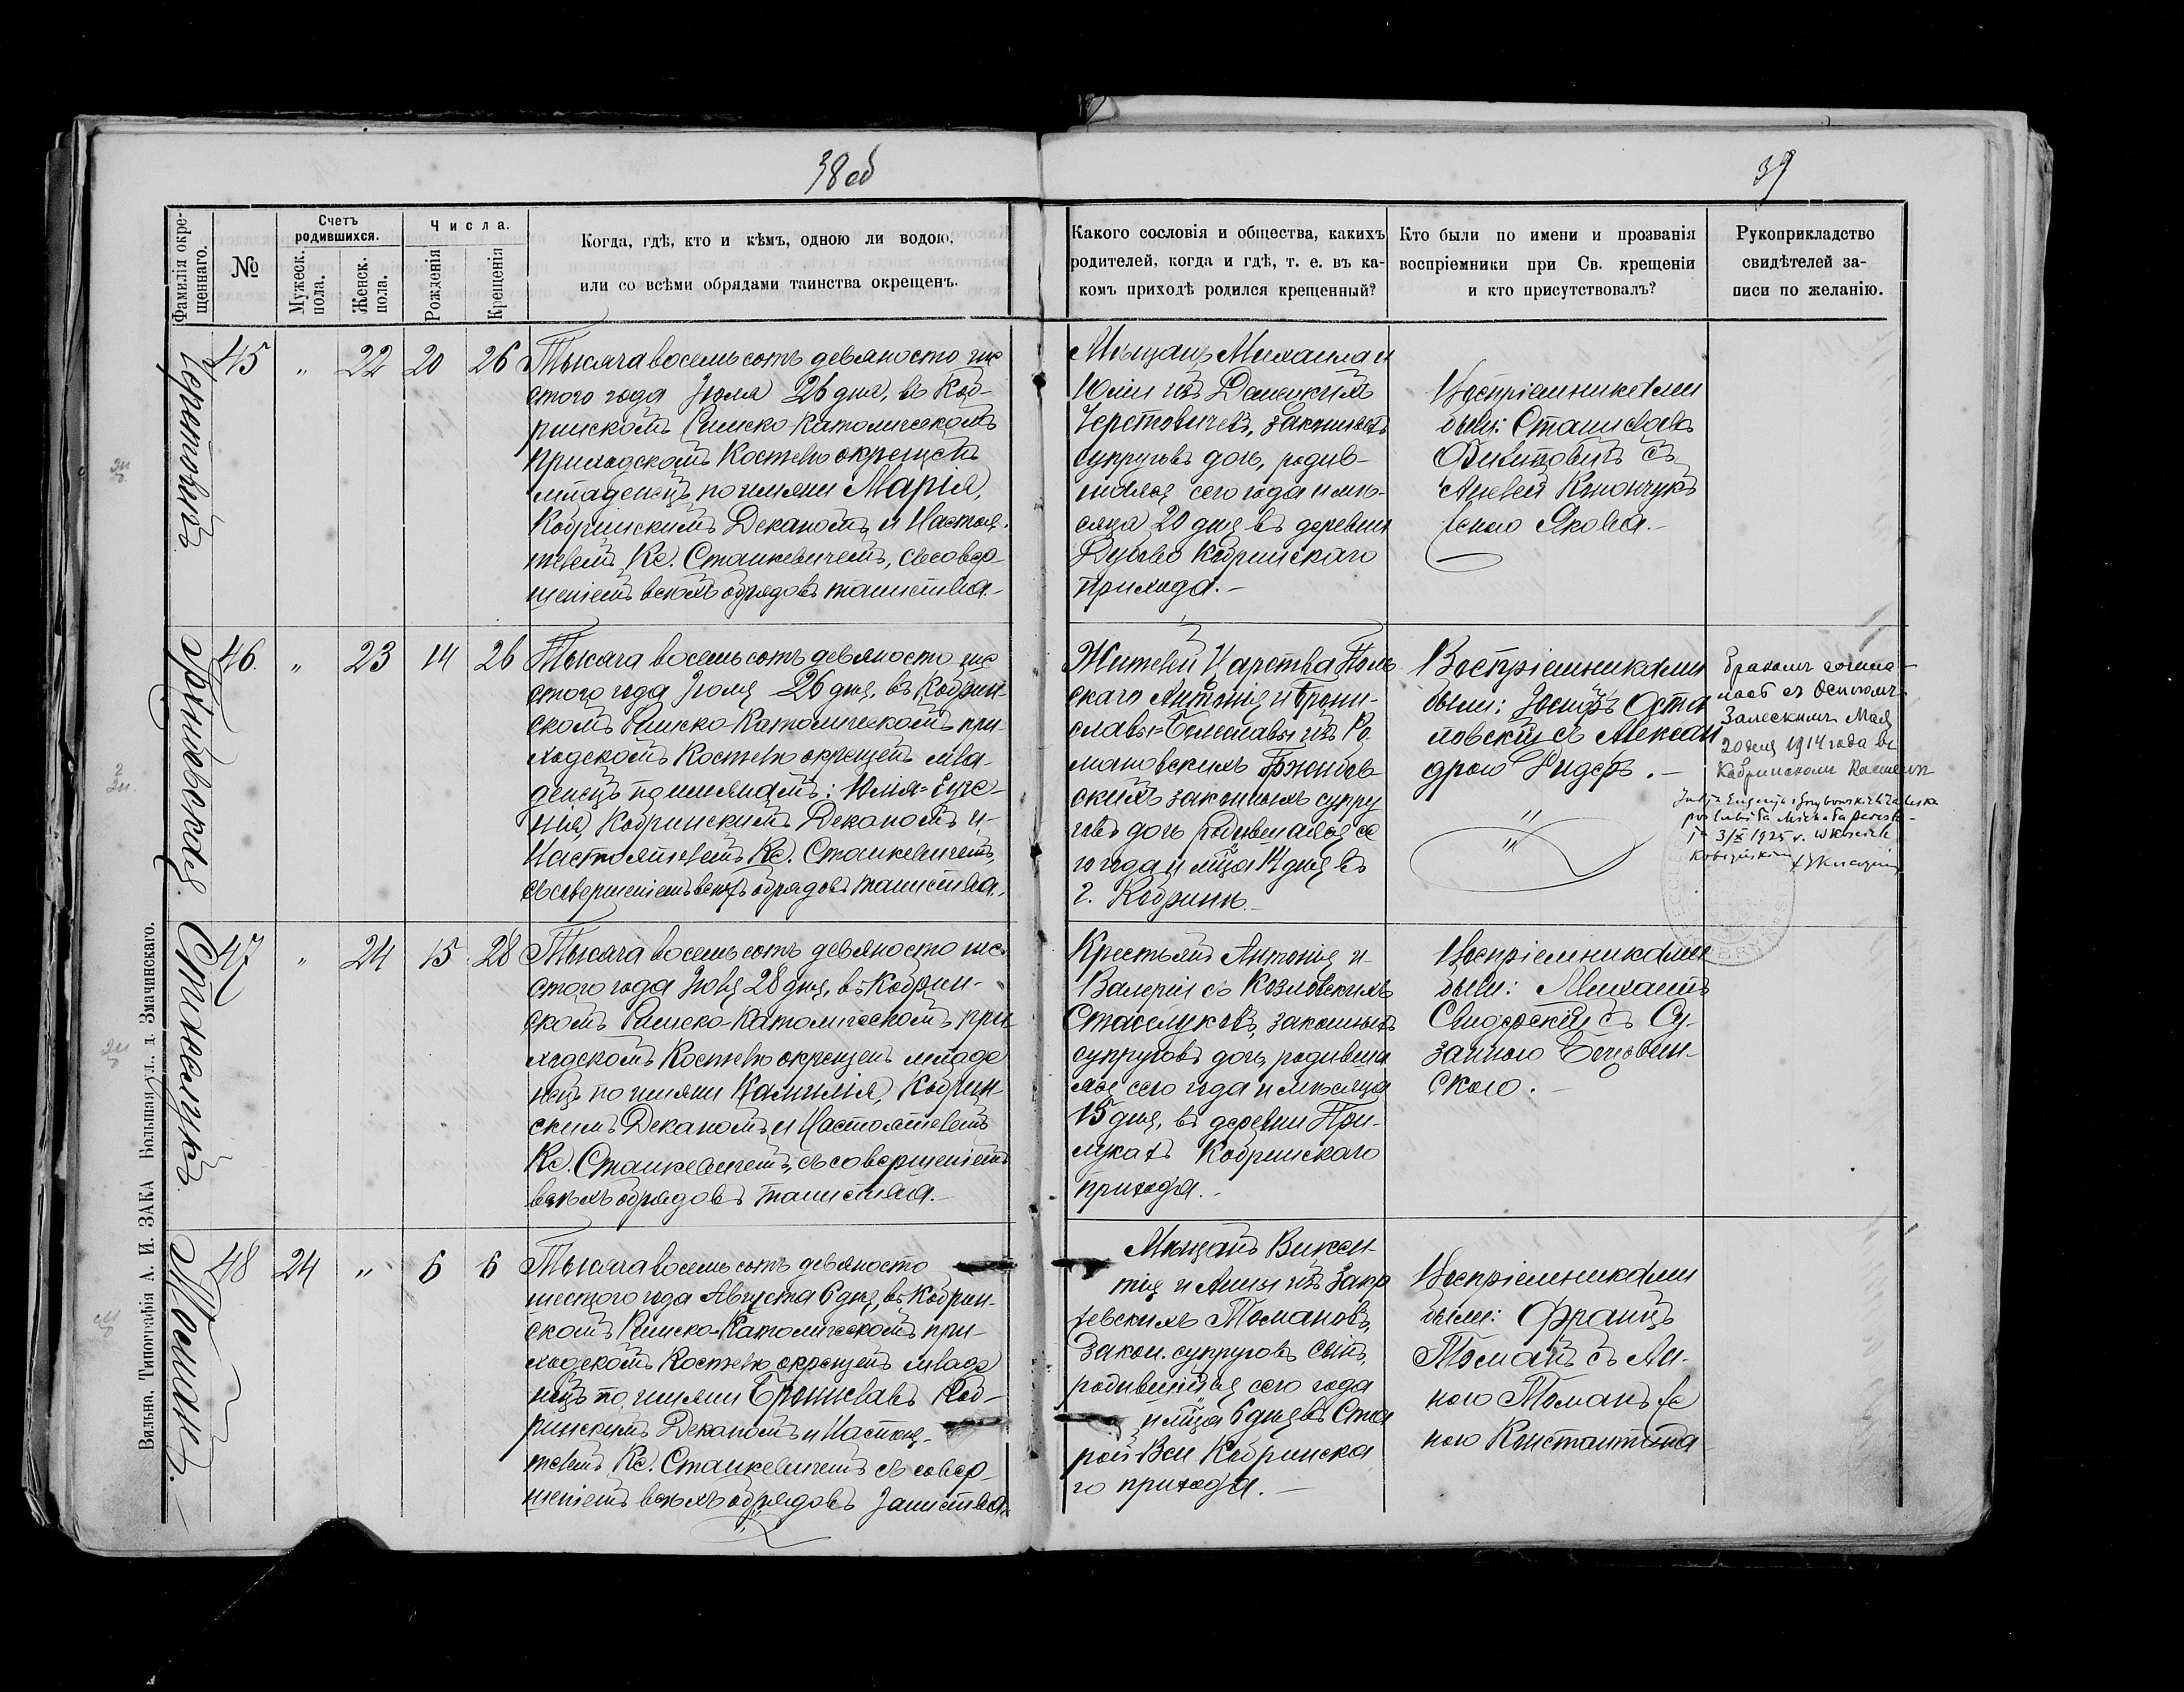 38 об
39
Фамилія окре-
щеннаго.
№
Счетъ
родившихся.
Мужеск.
пола.
Женск.
пола.
Числа.
Рожденія
Крещенія
Когда, гдѣ, кто и кѣмъ, одною ли водою,
или со всѣми обрядами таинства окрещенъ.
Какого сословія и общества, какихъ
родителей, когда и гдѣ, т. е. въ ка-
комъ приходѣ родился крещенный?
Кто были по имени и прозванія
воспріемники при Св. крещеніи
и кто присутствовалъ?
Рукоприкладство
свидѣтелей за-
писи по желанію.
Черетовичъ
45 " 22 20 26
Тысяча восемь сотъ девяносто ше
стого года Іюля 26 дня, въ Коб-
ринскомъ Римско-Католическомъ
приходскомъ Костелѣ окрещенъ
младенецъ по имяни Марія,
Кобринскимъ Деканомъ и Настоя-
телемъ Кс. Станкевичемъ, съ совер-
шеніемъ всѣхъ обрядовъ таинства.
Мѣщанъ Михаила и
Юліи изъ
Черетовичевъ, законныхъ
супруговъ дочь, родив-
шаяся сего года и мѣ-
сяца 20 дня въ деревни
Дубово Кобринскаго
прихода.
Воспріемниками
были: Станиславъ
съ
женою Якова.
46. " 23 14 26
Тысяча восемь сотъ девяносто ше
стого года Іюля 26 дня, въ Кобрин
скомъ Римско-Католическомъ при-
ходскомъ Костелѣ окрещенъ мла-
денецъ по имянамъ: Юлія-Евге-
нія, Кобринскимъ Деканомъ и
Настоятелемъ Кс. Станкевичемъ,
съ совершеніемъ всѣхъ обрядовъ таинства.
Жителей Царства Поль
скаго Антонія и Брони-
славы-Болеславы изъ Ро
мановскихъ Гржибов-
скихъ законныхъ супру
говъ дочь родившаяся се
го года и мѣсца 14 дня въ
г. Кобринѣ.
Воспріемниками
были: Іосифъ Оста
ловскій съ Алексан
дрою Ридеръ.
Бракомъ сочета-
лась съ Осипомъ
Залескимъ Мая
20 дня 1914 года въ
Кобринскомъ Костелѣ
3/X 1925 r. w Kościele
Kobryńskim
Стасюлукъ
47 " 24 15 28
Тысяча восемь сотъ девяносто ше
стого года Іюля 28 дня, въ Кобрин-
скомъ Римско-Католическомъ при
ходскомъ Костелѣ окрещенъ младе
нецъ по имяни Камилія, Кобрин-
скимъ Деканомъ и Настоятелемъ
Кс. Станкевичемъ, съ совершеніемъ
всѣхъ обрядовъ таинства.
Крестьянъ Антонія и
Валеріи съ Козловскихъ
законныхъ
супруговъ дочь, родивша
яся сего года и мѣсяца
15 дня, въ деревни При-
лукахъ Кобринскаго
прихода.
Воспріемниками
были: Михаилъ
Свидерскій съ Су-
занною
скою.
Томанъ.
48 24 " 6 6
Тысяча восемь сотъ девяносто
шестого года Августа 6 дня, въ Кобрин-
скомъ Римско-Католическомъ при-
ходскомъ Костелѣ окрещенъ младе
нецъ по имяни Брониславъ Коб-
ринскимъ Деканомъ и Настоя-
телемъ Кс. Станкевичемъ съ совер-
шеніемъ всѣхъ обрядовъ таинства.
Мѣщанъ Викен-
тія и Анны изъ Закр
жевскихъ Томановъ,
закон. супруговъ сынъ,
родившійся сего года
и мѣсца 6 дня въ Ста
рой-Вси Кобринска
го прихода.
Воспріемниками
были: Францъ
Томанъ съ Ан-
ною Томанъ же
ною Константина
Вильна. Типографія А. И. ЗАКА Большая ул., д. Змачинскаго.